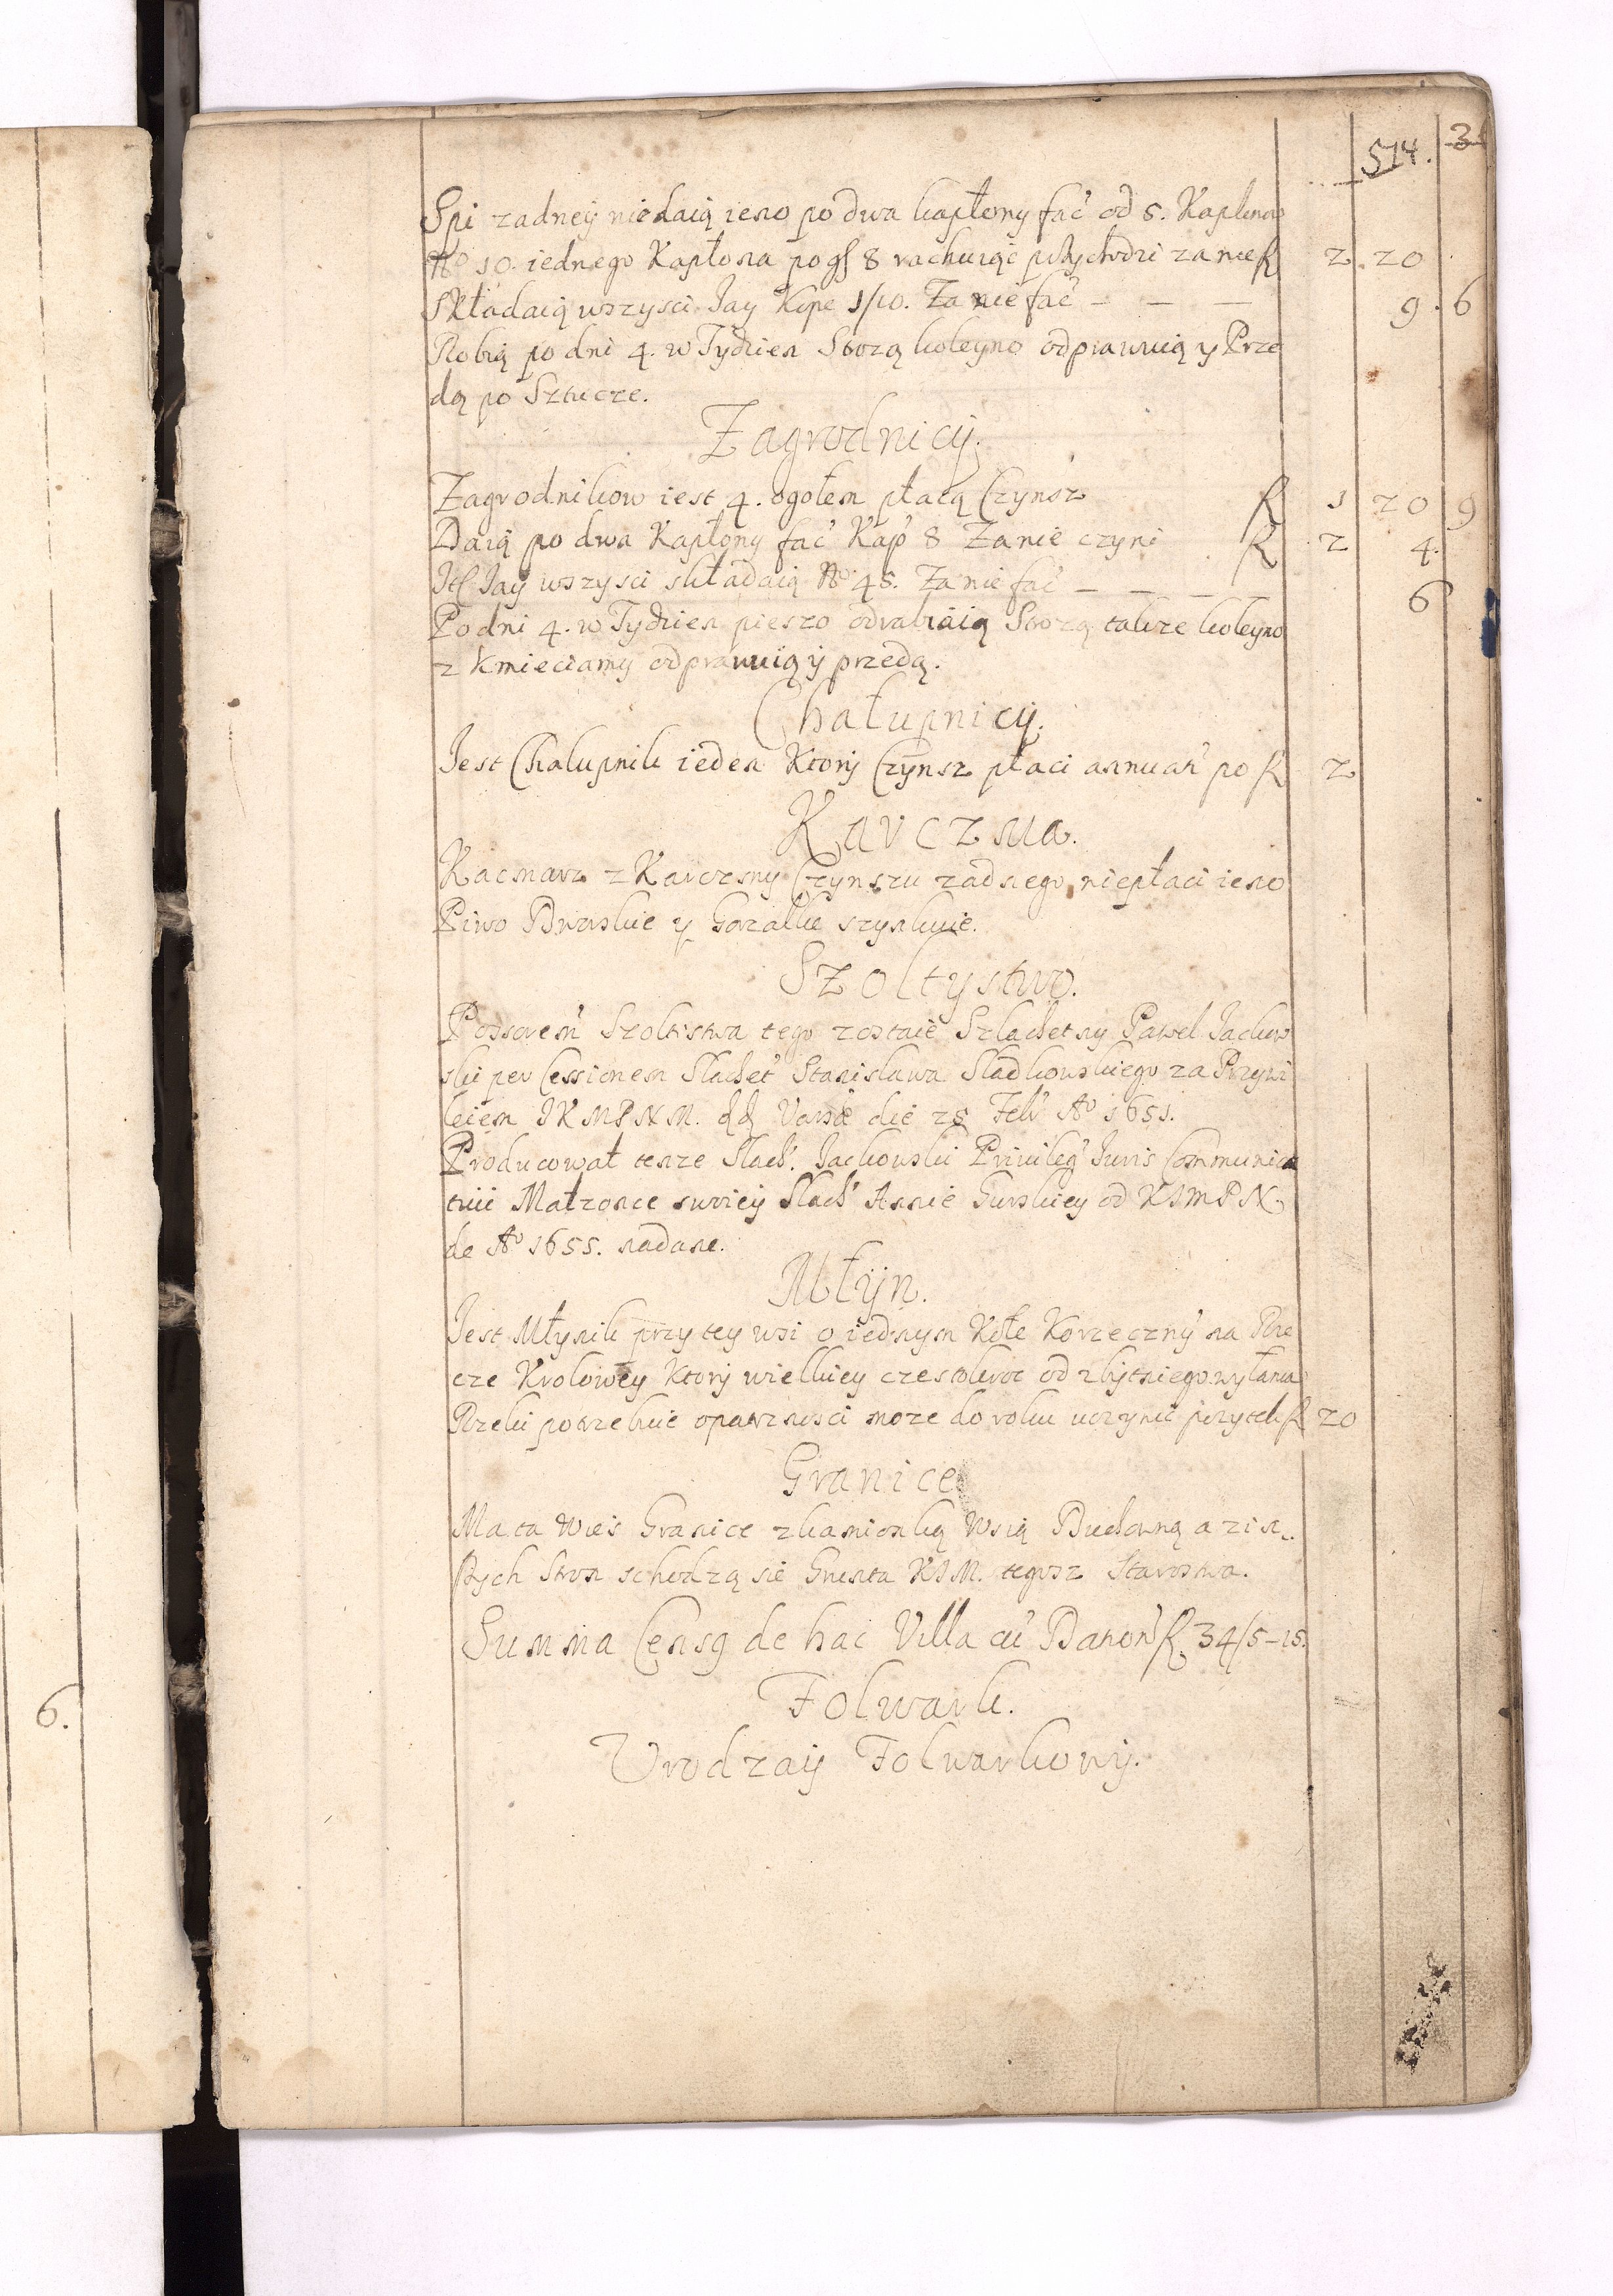 514. 3
Spi zadney niedaią ieno po dwa kapłony fać od 5. Kaplonow
No 10. iednego Kapłona po gſ 8 rachuiąc przychodzi za nie ƒ 2. 20
Składaią wszysci Jay Kope 1/10. Za nie fać — — — 9. 6
Robią po dni 4. w Tydzien Strozą koleyno odprawuią y Prze
dą po Sztucze.
Zagrodnicy.
Zagrodnikow iest 4. ogołem płacą Czynsz ƒ 1 20 9
Daią po dwa Kapłony fać Kap 8 Za nie czyni ƒ 2 4.
Jay wszysci składaią No 45. Za nie fać — — — 6
Po dni 4. w Tydzien pieszo odrabiaią Strozą takze koleyno
z kmieciamy odprawuią y przedą.
Chałupnicy.
Jest Chalupnik ieden Ktory Czynsz płaci annuań po ƒ 2
Karczma.
Kacmarz z Karczmy Czynszu zadnego niepłaci ieno
Piwo Dworskie y Gorzałke szynkuie.
Szoltystwo.
Possoreń Szoltistwa tego zostaie Szlachetny Paweł Jackow
ski per Cessionem Slachet Stanislawa Sladkowskiego za Przywi
leiem JKMPNM. Varsae die 28 Feb Ao 1651.
Producował tenze Slach. Jackowski Privileg Juris Communica
tivii Małzonce swoiey Slach Annie Gurskiey od KJMPN
de Ao 1655. nadane.
Młyn.
Jest Młynik przy tey wsi o iednym Kole Korzeczny na Rze
cze Krolowey Ktory wielkiey czestokroc od zbytniego wylania
Rzeki potrzebuie opatrznosci moze do roku uczynic pozytek ƒ 20
Granice
Ma ta Wies Granice z kamionką Wsią Duchowną a z in
szych Stron schodzą sie Grunta KJM. tegosz Starostwa.
Summa Censg de hac Villa cu Danoń ƒ 34/5–15.
Folwark.
Urodzay Folwarkowy.
6.